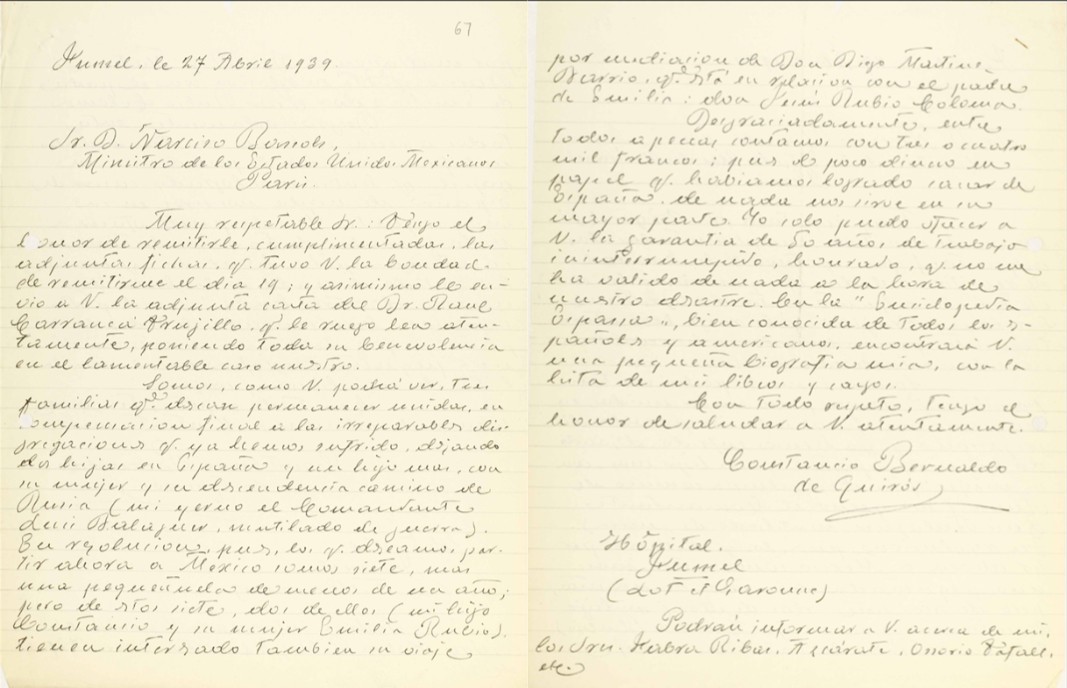 67
Fumel, le 27 Abril 1939.
Sr. D. Narciso Bassols,
Ministro de los Estados Unidos Mexicanos
Paris.
Muy respetable Sr.: Tengo el
honor de remitirle, cumplimentadas, las
adjuntas fichas, q. tuvo V. la bondad
de remitirme el dia 19; y asimismo le en-
vio a V. la adjunta carta del Dr. Raul
Carrancá Trujillo, q. le ruego lea aten-
tamente, poniendo toda su benevolencia
en el lamentable caso nuestro.
Somos, como V. podrá ver, tres
familias q.e desean permanecer unidas, en
compensacion final a las irreparables dis-
gregaciones q. ya hemos sufrido, dejando
dos hijas en España y un hijo mas, con
su mujer y su descendencia camino de
Rusia (mi yerno el Comandante
Luis Balaguer, mutilado de guerra).
En resolucion, pues, los q. deseamos par-
tir ahora a Mexico somos siete, mas
una pequeñuela de menos de un año;
pero de estos siete, dos de ellos (mi hijo
Constancio y su mujer Emilia Rubio),
tienen interesado tambien su viaje
por mediacion de Don Diego Martinez
Barrio, q.e está en relacion con el padre
de Emilia: don Jesús Rubio Coloma.
Desgraciadamente, entre
todos apenas contamos con tres o cuatro
mil francos; pues el poco dinero en
papel q. habiamos logrado sacar de
España, de nada nos sirve en su
mayor parte. Yo solo puedo ofrecer a
V. la garantia de 50 años de trabajo
ininterrumpido, honrado, q. no me
ha valido de nada a la hora de
nuestro desastre. En la "Enciclopedia
Espasa", bien conocida de todos los es-
pañoles y americanos, encontrará V.
una pequeña biografia mia, con la
lista de mis libros y ensayos.
Con todo respeto, tengo el
honor de saludar a V. atentamente.
Constancio Bernaldo
de Quirós
Hôpital.
Fumel
(Lot et Garonne)
Podrán informar a V. acerca de mi,
los Sres. Fabra Ribas, Azcárate, Osorio Tafall,
etc.